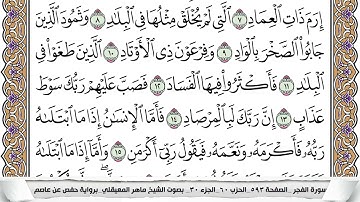 إِرَمَ ذَاتِ ٱلْعِمَادِ ٧ ٱلَّتِى لَمْ يُخْلَقْ مِثْلُهَا فِى ٱلْبِلَٰدِ ٨ وَثَمُودَ ٱلَّذِينَ
جَابُوا۟ ٱلصَّخْرَ بِٱلْوَادِ ٩ وَفِرْعَوْنَ ذِى ٱلْأَوْتَادِ ١٠ ٱلَّذِينَ طَغَوْا۟ فِى
ٱلْبِلَٰدِ ١١ فَأَكْثَرُوا۟ فِيهَا ٱلْفَسَادَ ١٢ فَصَبَّ عَلَيْهِمْ رَبُّكَ سَوْطَ
عَذَابٍ ١٣ إِنَّ رَبَّكَ لَبِٱلْمِرْصَادِ ١٤ فَأَمَّا ٱلْإِنسَٰنُ إِذَا مَا ٱبْتَلَىٰهُ
رَبُّهُۥ فَأَكْرَمَهُۥ وَنَعَّمَهُۥ فَيَقُولُ رَبِّىٓ أَكْرَمَنِ ١٥ وَأَمَّآ إِذَا مَا ٱبْتَلَىٰهُ
سورة الفجر _ الصفحة ٥٩٣ _ الحزب ٦٠ _ الجزء ٣٠ _ بصوت الشيخ ماهر المعيقلي _ برواية حفص عن عاصم